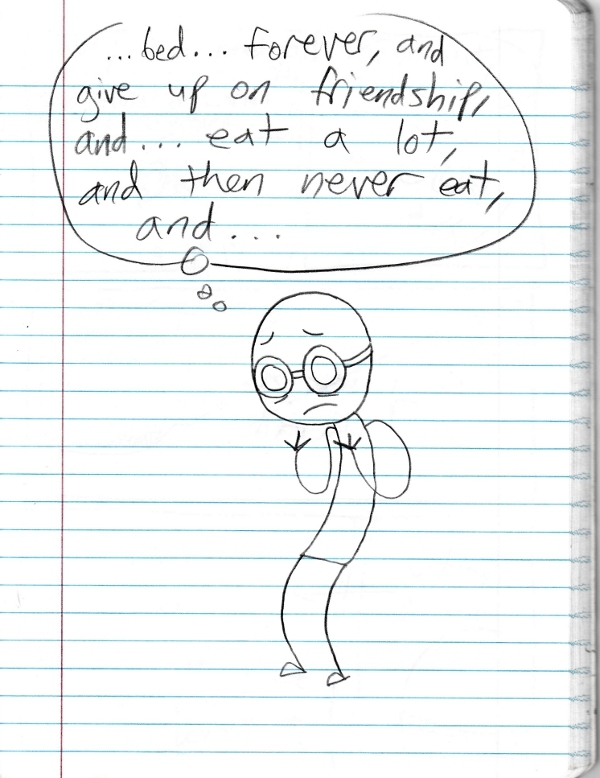 ...bed... forever, and
give up on friendship,
and... eat a lot,
and then never eat,
and...